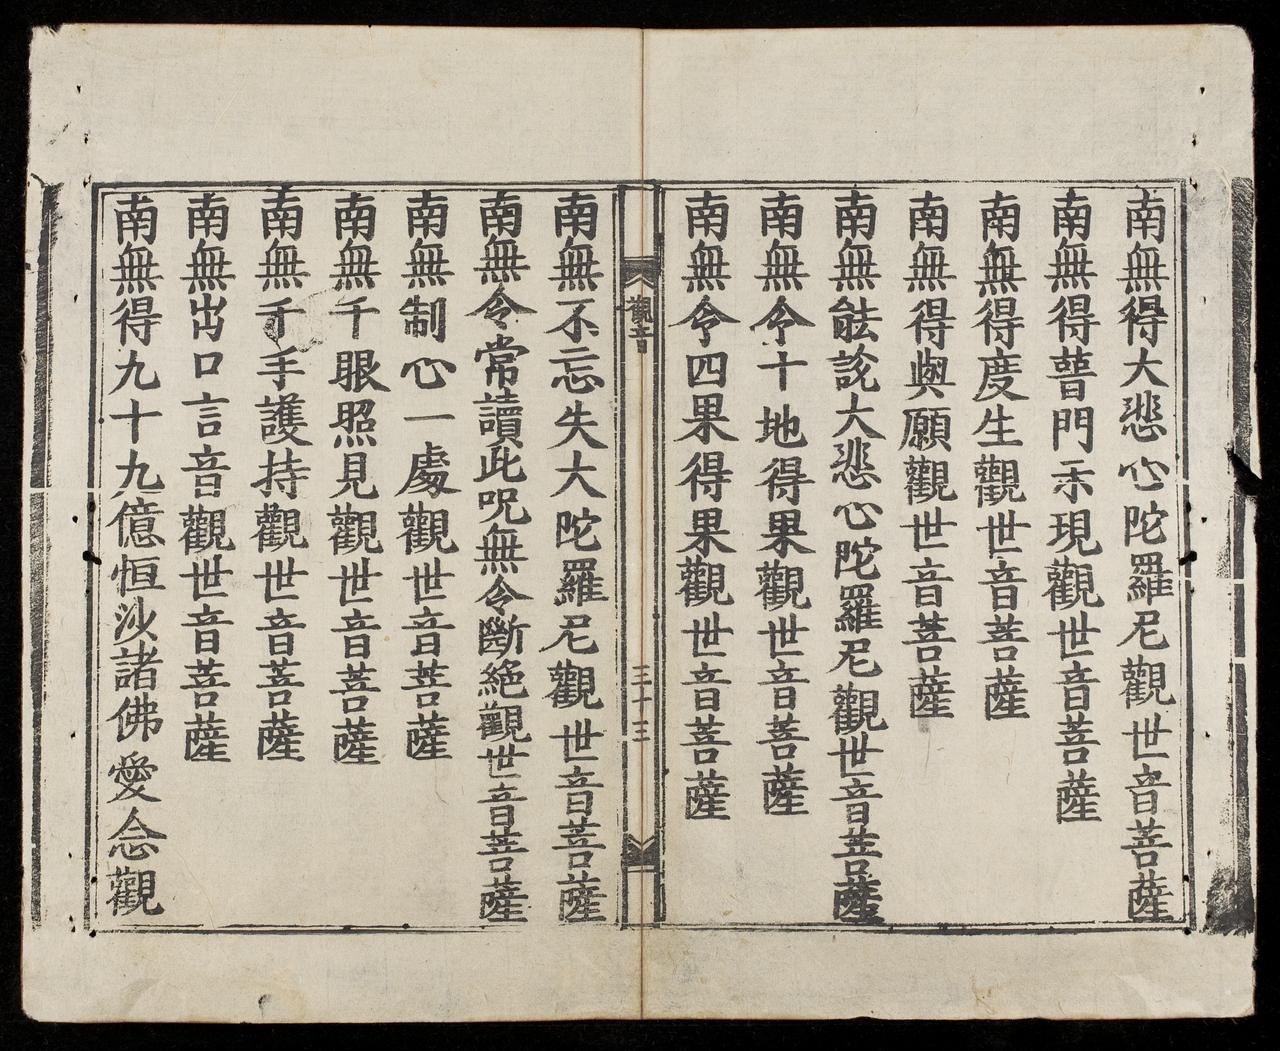 南無得大悲心陀羅尼觀世音菩薩
南無得普門示現觀世音菩薩
南無得度生觀世音菩薩
南無得與願觀世音菩薩
南無能說大悲心陀羅尼觀世音菩薩
南無令十地得果觀世音菩薩
南無令四果得果觀世音菩薩
觀音
三十三
南無不忘失大陀羅尼觀世音菩薩
南無令常讀此呪無令斷絶觀世音菩薩
南無制心一處觀世音菩薩
南無千眼照見觀世音菩薩
南無千手護持觀世音菩薩
南無出口言音觀世音菩薩
南無得九十九億恒沙諸佛愛念觀